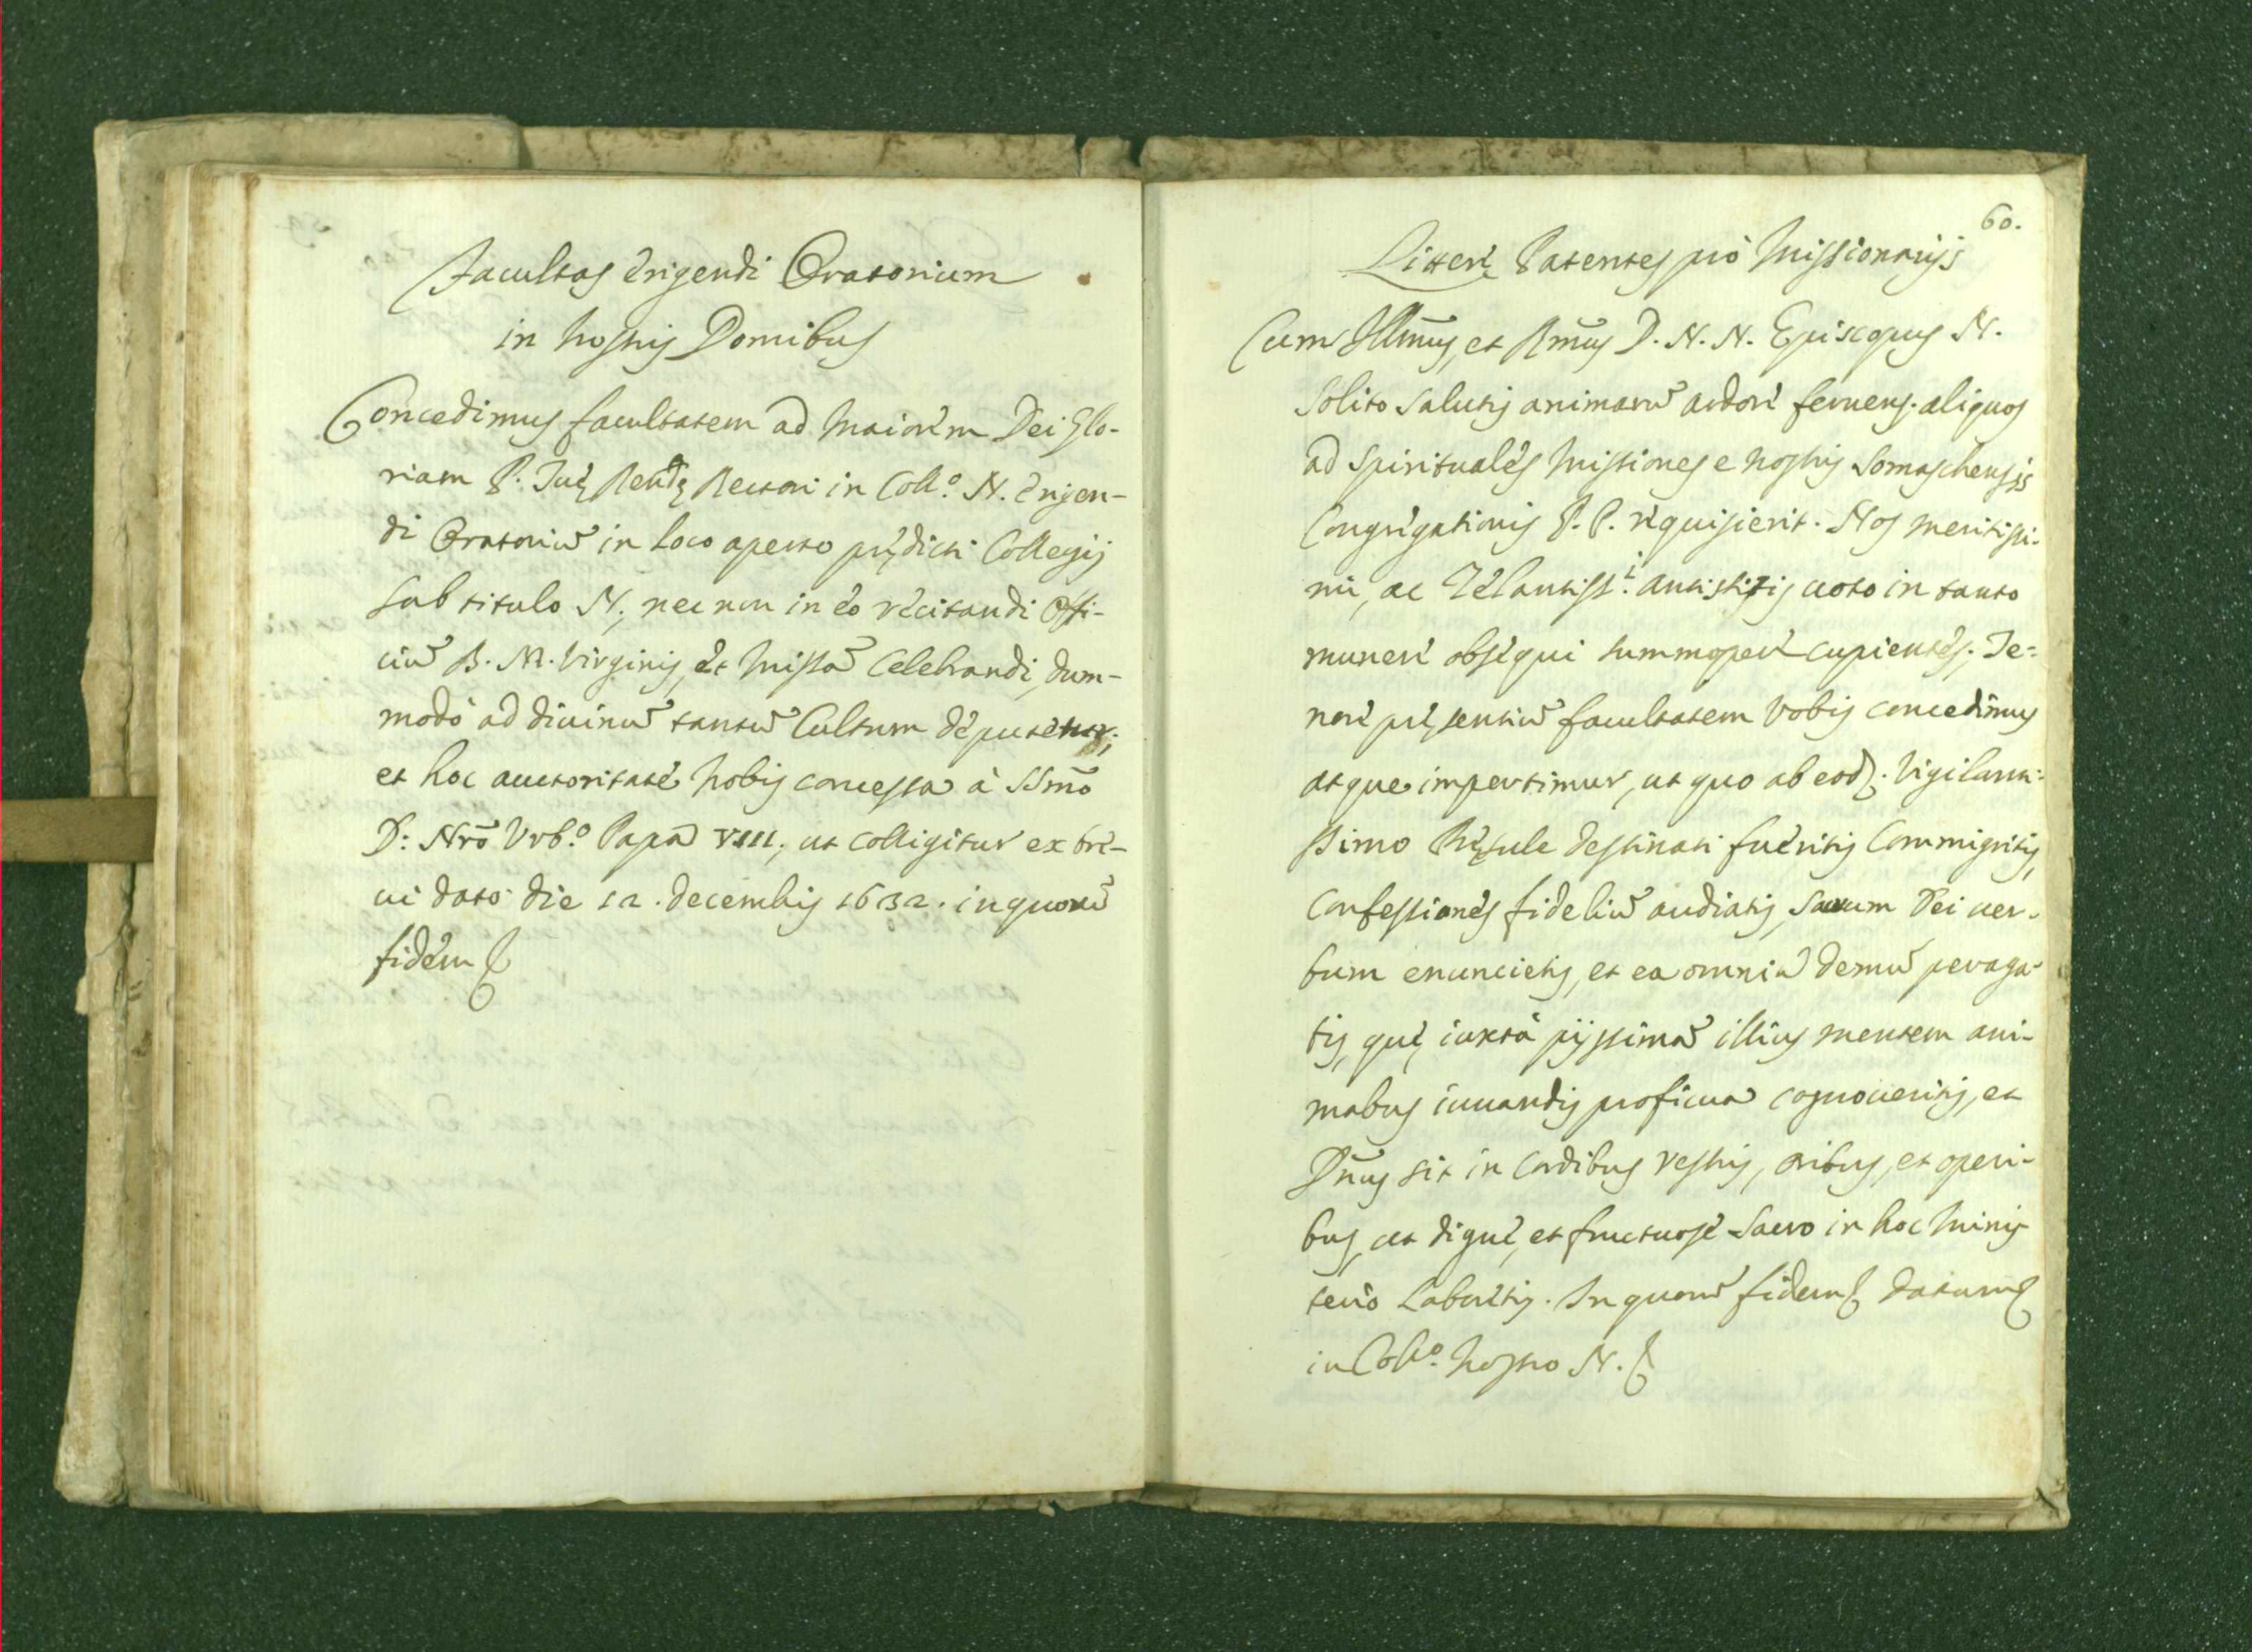 Facultas erigendi Oratorium
in nostris Domibus
Concedimus facultatem ad maiorem Dei glo-
riam P. Tuę Reudę Rectori in Coll.º N. erigen-
di Oratoriũ in loco aperto prędicti Collegij
sub titulo N; nec non in eo recitandi offi-
ciũ B. M. Virginis, et missã celebrandi, dum-
modò ad diuinũ tantũ Cultum deputetur;
et hoc auctoritate nobis concessa à SSmõ
D: Nrõ Vrb.º Papa VIII; ut colligitur ex bre-
ui dato die 12. decembris 1632. in quorũ
fidem
60.
Litterę Patentes prò missionarijs
Cum Illmũs, et Rmũs D. N. N. Episcopus N.
solito salutis animarũ ardore feruens. aliquos
ad spirituales missiones e nostris Somaschensis
Congregationis P. P. requisierit. Nos meritissi-
mi, ac Zelantiss.i antistitis uoto in tanto
munere obsequi summopere cupientes. Te-
nore pręsentiũ facultatem vobis concedimus
atque impertimur, ut quo ab eod. vigilanti-
ssimo Pręsule destinati fueritis commigretis,
confessiones fideliũ audiatis, sacrum Dei uer-
bum enuncietis, et ea omnia demũ peraga-
tis, quę iuxtà pijssimã illius mentem ani-
mabus iuuandis proficua cognoueritis, et
Dñus sit in cordibus vestris, oribus, et operi-
bus, ut digne, et fructuose sacro in hoc minis
terio laboretis. In quorũ fidem datum
in Coll.º nostro N.